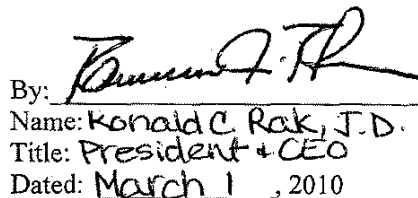 By:
Name: Ronald C. Rak, J.D.
Title: President + CEO
Dated: March 1, 2010